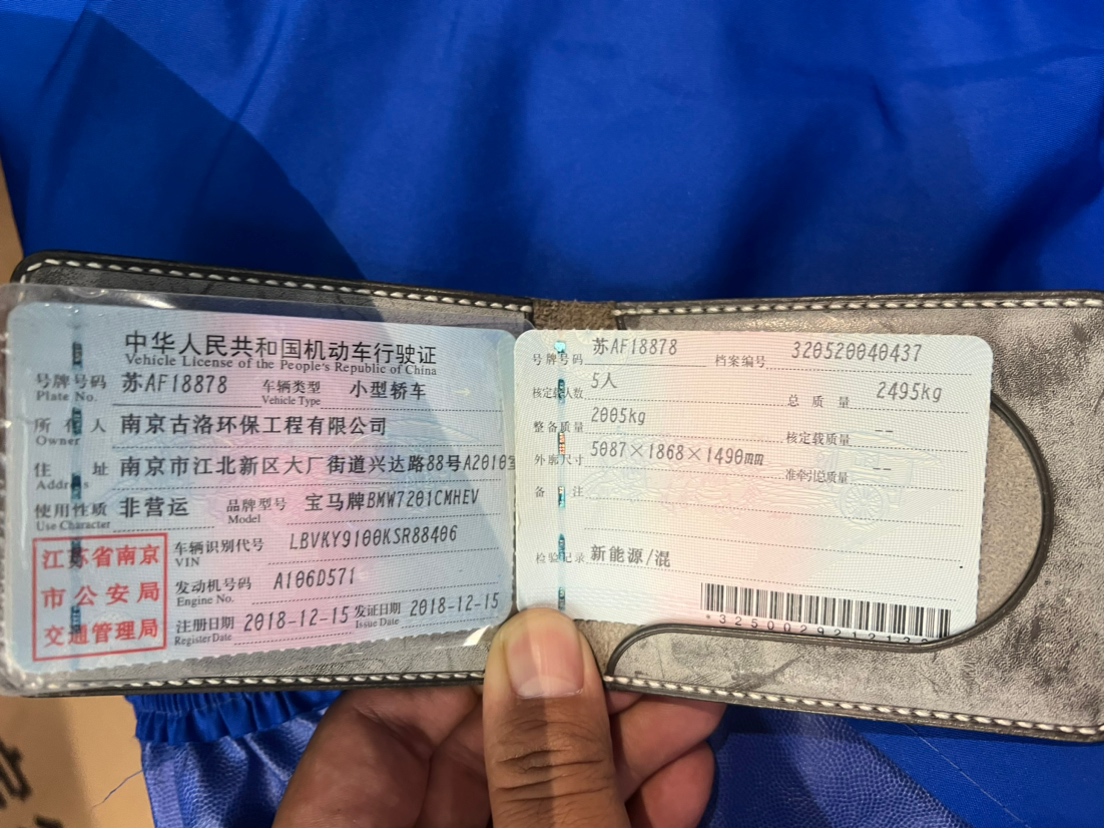 中华人民共和国机动车行驶证
Vehicle License of the People's Republic of China
号牌号码 苏AF18878 车辆类型 小型轿车
Plate No. Vehicle Type
所有人 南京古洛环保工程有限公司
Owner
住址 南京市江北新区大厂街道兴达路88号A2010室
Address
使用性质 非营运 品牌型号 宝马牌BMW7201CMHEV
Use Character Model
江苏省南京
市公安局
交通管理局
车辆识别代号 LBVKY9100KSR88406
VIN
发动机号码 A106D571
Engine No.
注册日期 2018-12-15 发证日期 2018-12-15
Register Date Issue Date
号牌号码 苏AF18878 档案编号 320520040437
核定载人数 5人 总质量 2495kg
整备质量 2005kg 核定载质量 --
外廓尺寸 5087×1868×1490mm 准牵引总质量 --
备注
检验记录 新能源/混